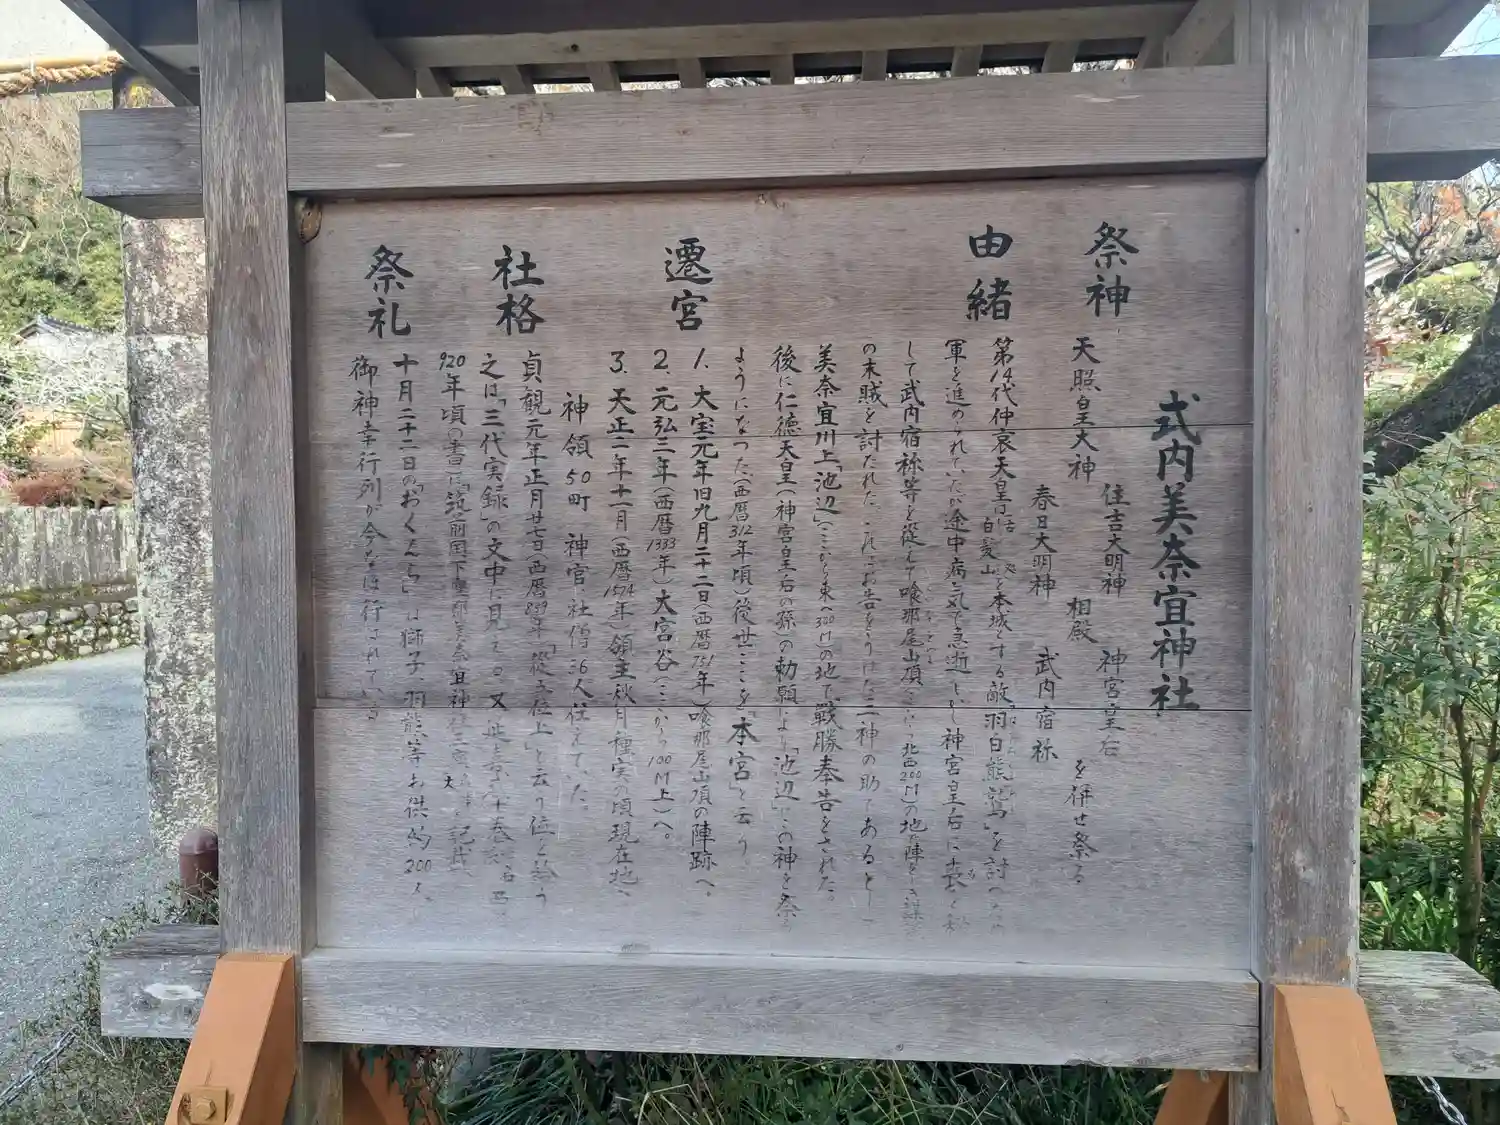 式内美奈宜神社
祭神
天照皇大神
住吉大明神
春日大明神
相殿
神宮皇后
武内宿祢
を併せ祭る
由緒
第14代仲哀天皇は
白髪山
を本城とする敵羽白熊鷲」を討
軍を進められていたが途中病気で急逝
神宮皇后に
して武内宿祢等を従えて喰那尾山頂
北西200M)の地に陣をしき
の末賊を討たれた。
お告をうけた三神の助
あると
美奈宜川上「池辺」(ここから東へ300M)の地で戦勝奉告をされた。
後に仁徳天皇(神宮皇后の孫)の勅願により「池辺」にこの神を祭る
ようになった(西暦312年頃)後世ここを「本宮」と云う。
遷宮
1. 大宝元年旧九月二十二日(西暦731年)喰那尾山頂の陣跡へ。
2. 元弘三年(西暦1333年)大宮谷(ここから100M上)へ。
3. 天正二年十一月(西暦1574年)領主秋月種実の頃現在地へ
神領50町 神官・社僧36人仕えていた
社格
貞観元年正月廿七日(西暦859年「従五位上」と云う位を給う
之は「三代実録」の文中に見える。又
920年頃の書に「筑前国下座郡美奈宜神社三
大
と記載
祭礼
十月二十二日の「おくんち」は獅子、羽熊等お供約200人
御神幸行列が今なほ行われている